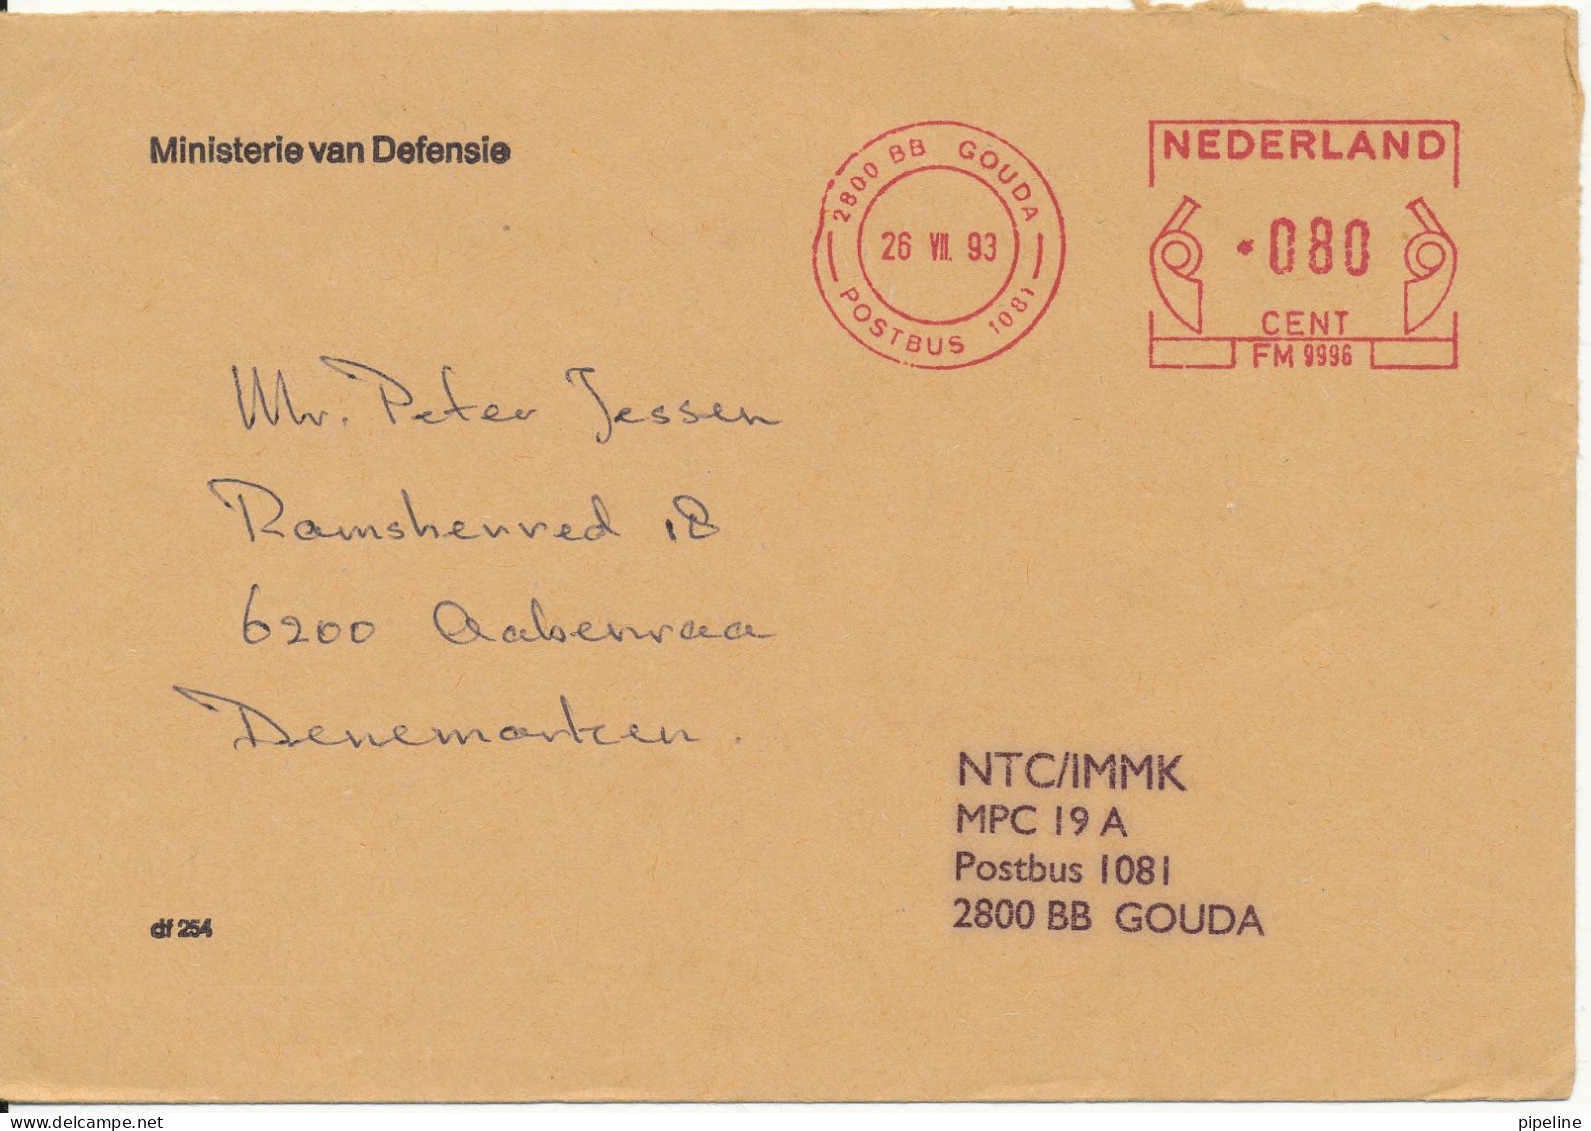 Ministerie van Defensie
2800 BB GOUDA
26 VII. 93
POSTBUS 1081
NEDERLAND
*080
CENT
FM 9996
Mr. Peter Jessen
Ramsherred 18
6200 Aabenraa
Denemarken.
NTC/IMMK
MPC 19 A
Postbus 1081
2800 BB GOUDA
df 254
delcampe.net
pipeline